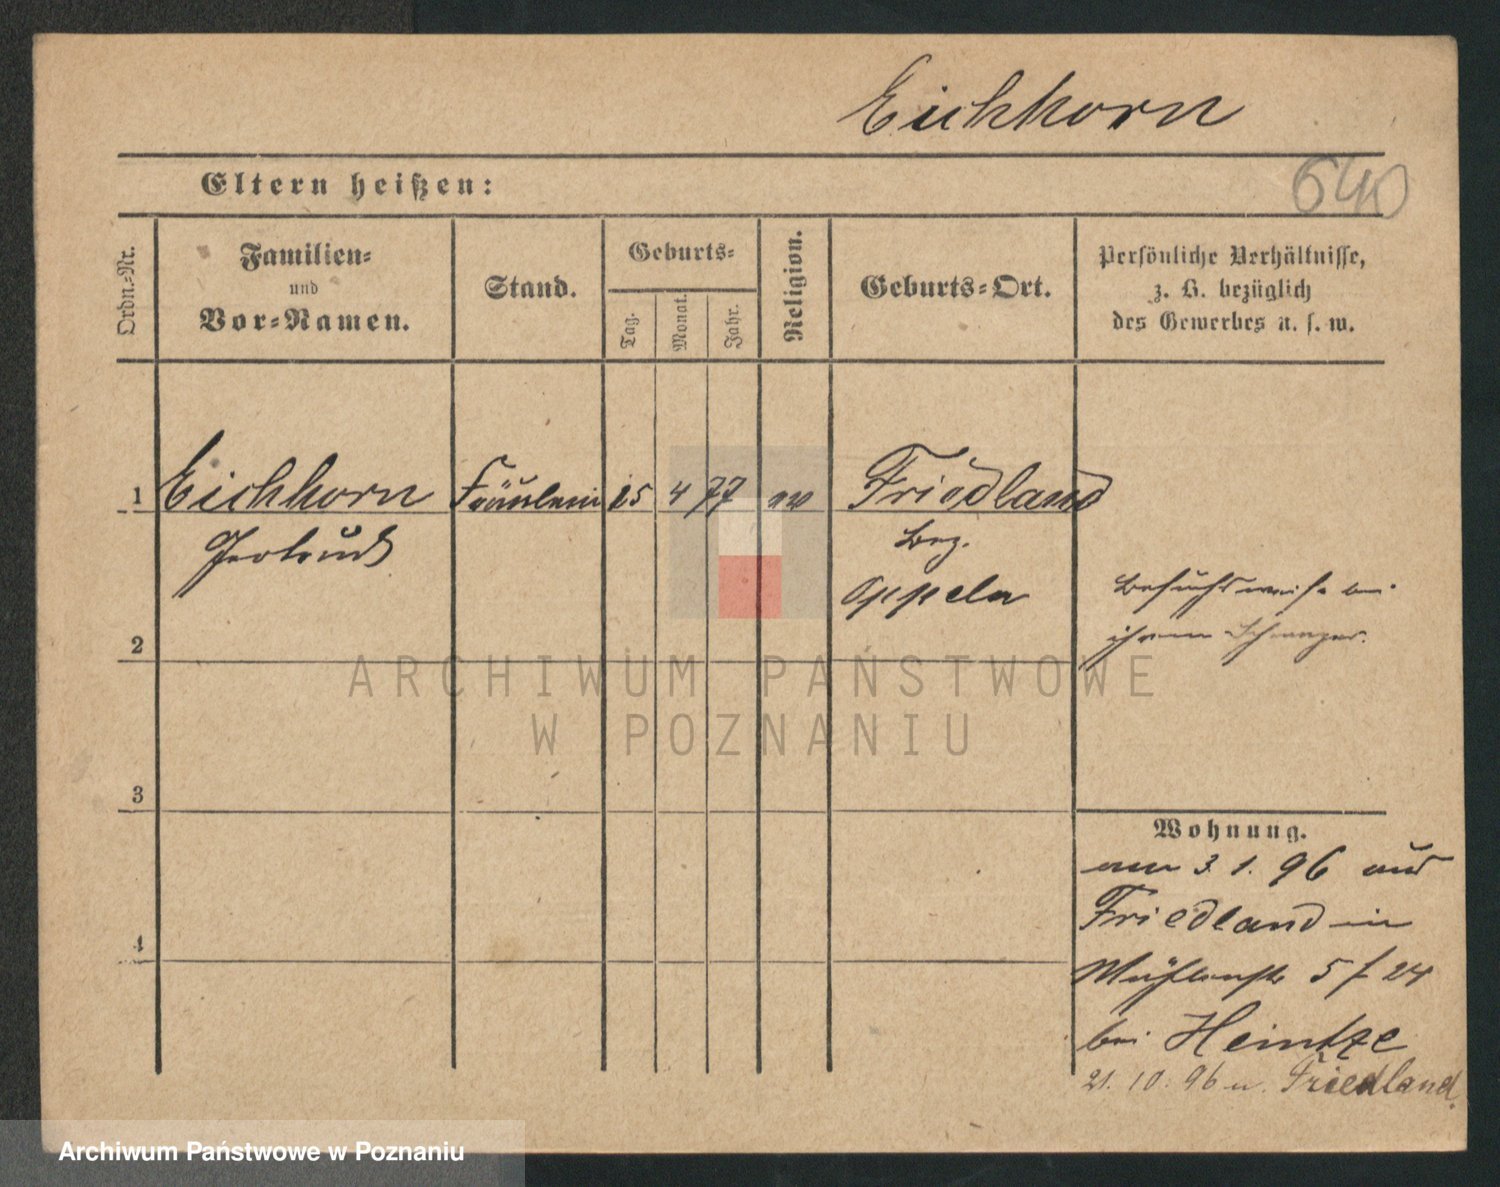 Eichhorn
640
Eltern heißen:
Ordn.-Nr.
Familien-
und
Vor-Namen.
Stand.
Geburts-
Tag.
Monat.
Jahr.
Religion.
Geburts-Ort.
Persönliche Verhältnisse,
z. B. bezüglich
des Gewerbes u. s. w.
1 Eichhorn Fräulein 15 4 77 ev Friedland
Gertrud Bez.
Oppeln
Besuchsweise bei
ihrem Schwager.
2
3
4
Wohnung.
am 3. 1. 96 aus
Friedland in
Mühlenstr 5 f 24
bei Heintze
21. 10. 96 n. Friedland.
ARCHIWUM PAŃSTWOWE
W POZNANIU
Archiwum Państwowe w Poznaniu